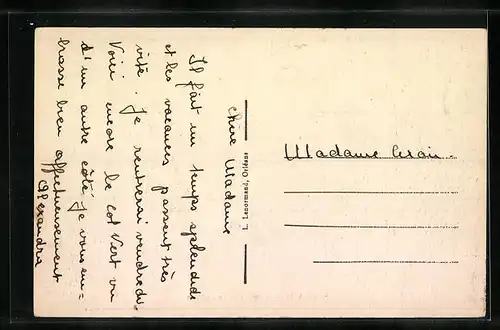 Chère Madame
Il fait un temps splendide
et les vacances passent très
vite. Je rentrerai vendredi.
Voici encore le col Vert vu
d'un autre côté. Je vous em=
brasse bien affectueusement
Alexandra
L. Lenormand, Orléans
Madame